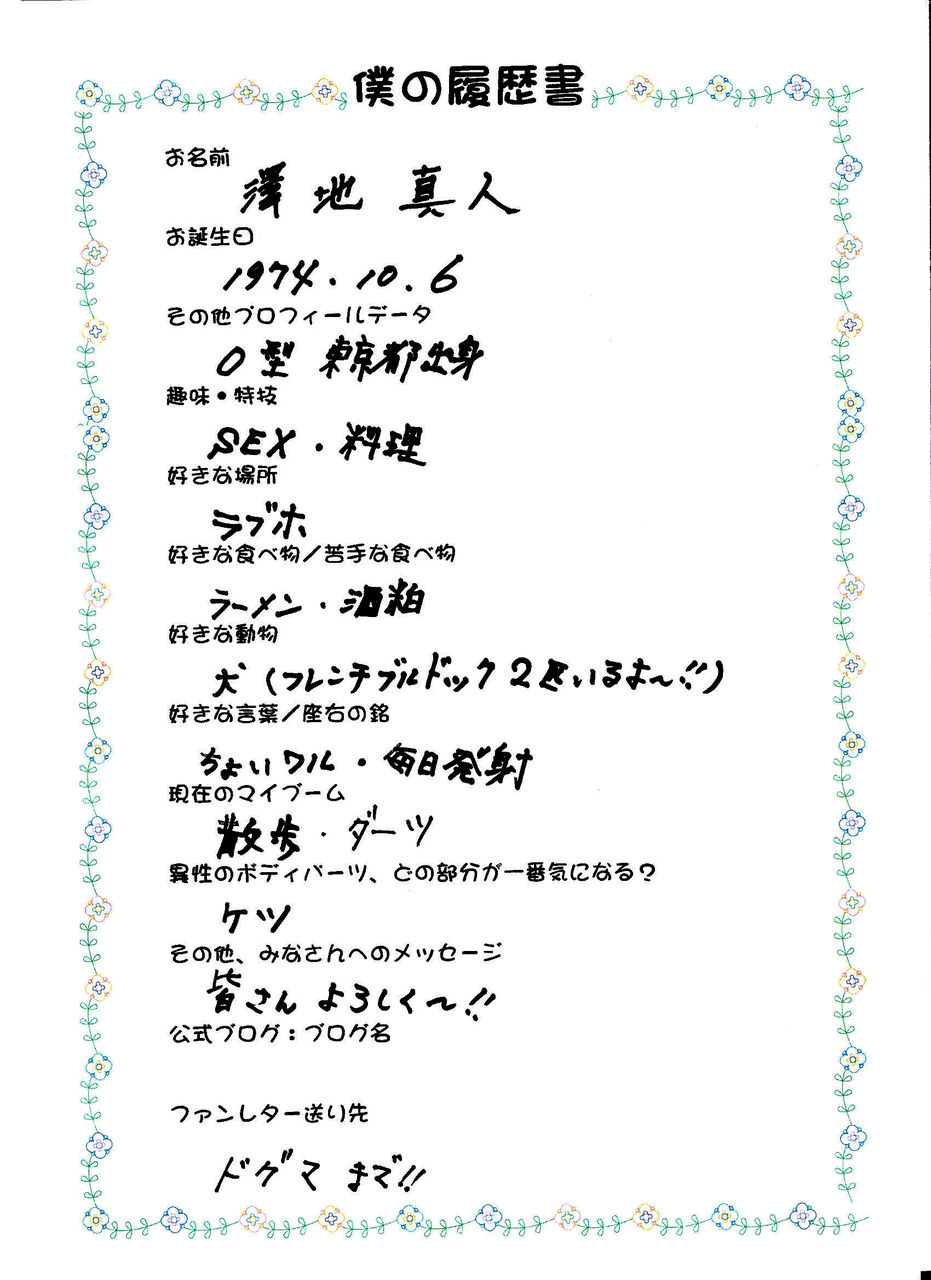 僕の履歴書
お名前
澤地 真人
お誕生日
1974.10.6
その他プロフィールデータ
O型 東京都出身
趣味・特技
SEX・料理
好きな場所
ラブホ
好きな食べ物/苦手な食べ物
ラーメン・酒粕
好きな動物
犬(フレンチブルドック2匹いるよ〜!!)
好きな言葉/座右の銘
ちょいワル・毎日発射
現在のマイブーム
散歩・ダーツ
異性のボディパーツ、どの部分が一番気になる?
ケツ
その他、みなさんへのメッセージ
皆さん よろしく〜!!
公式ブログ:ブログ名
ファンレター送り先
ドグマ まで!!